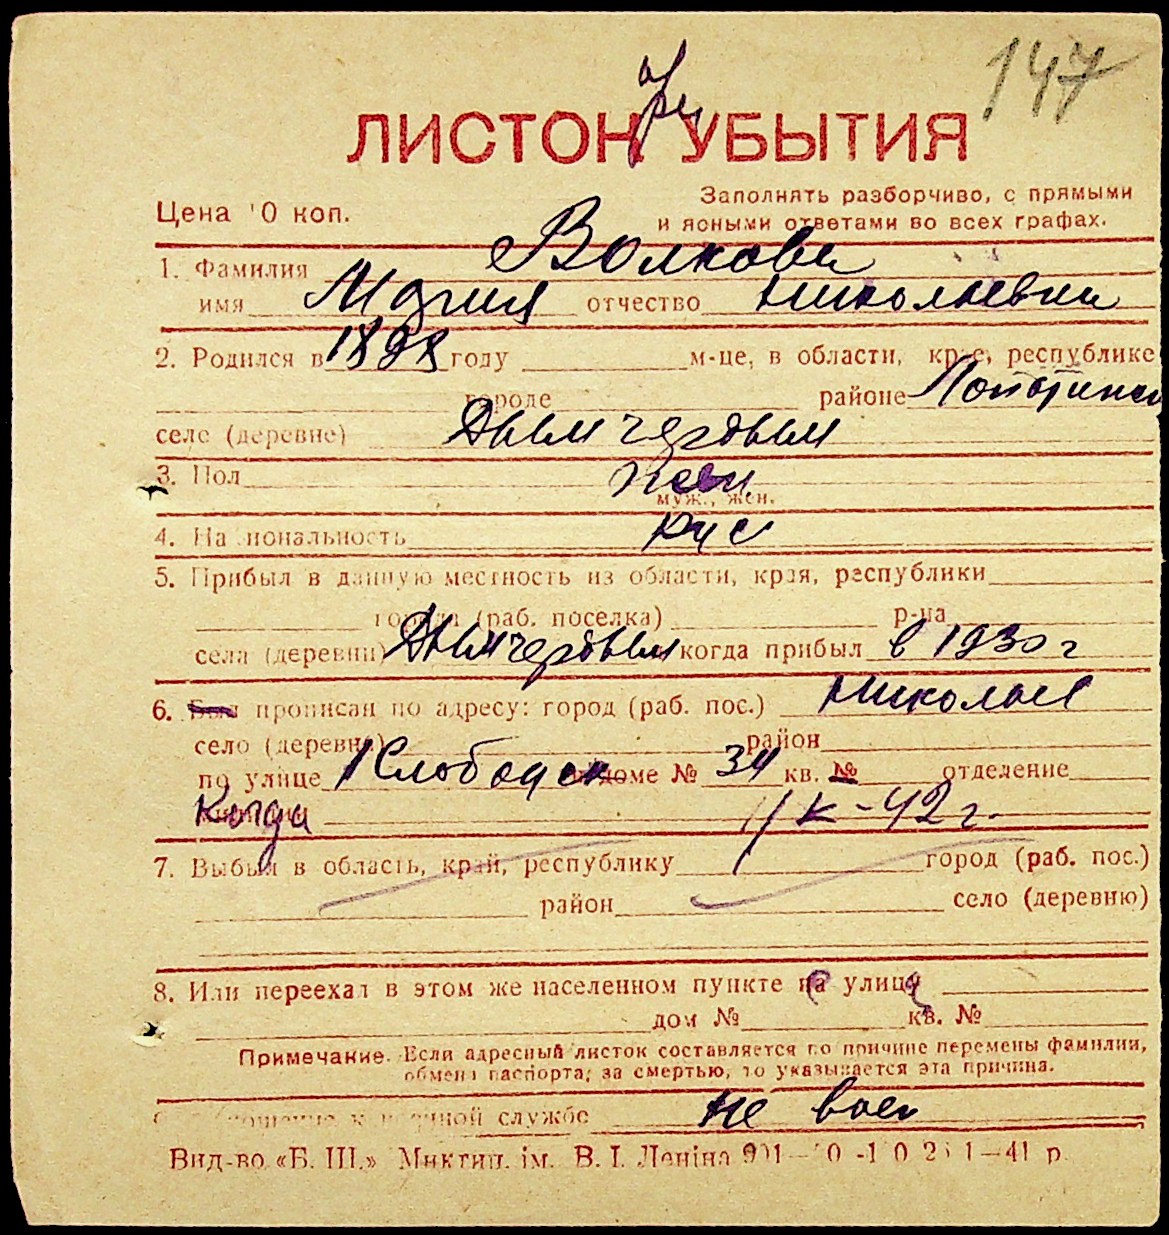 147
ЛИСТОК при УБЫТИЯ
Цена 10 коп.
Заполнять разборчиво, с прямыми
и ясными ответами во всех графах.
1. Фамилия Волкова
имя Мария отчество Николаевна
2. Родился в 1898 году м-це, в области, крае, республике
городе районе
село (деревне)
3. Пол жен
муж., жен.
4. Национальность рус
5. Прибыл в данную местность из области, края, республики
города (раб. поселка) р-на
села (деревни) когда прибыл в 1930 г
6. Был прописан по адресу: город (раб. пос.) Николаев
село (деревня) район
по улице 1 Слободск в доме № 34 кв. № отделение
Когда 1/X-42 г.
7. Выбыл в область, край, республику город (раб. пос.)
район село (деревню)
8. Или переехал в этом же населенном пункте на улицу
дом № кв. №
Примечание. Если адресный листок составляется по причине перемены фамилии,
обмена паспорта, за смертью, то указывается эта причина.
службе не воен
Вид-во «Б. Ш.» Миктип. ім. В. І. Леніна